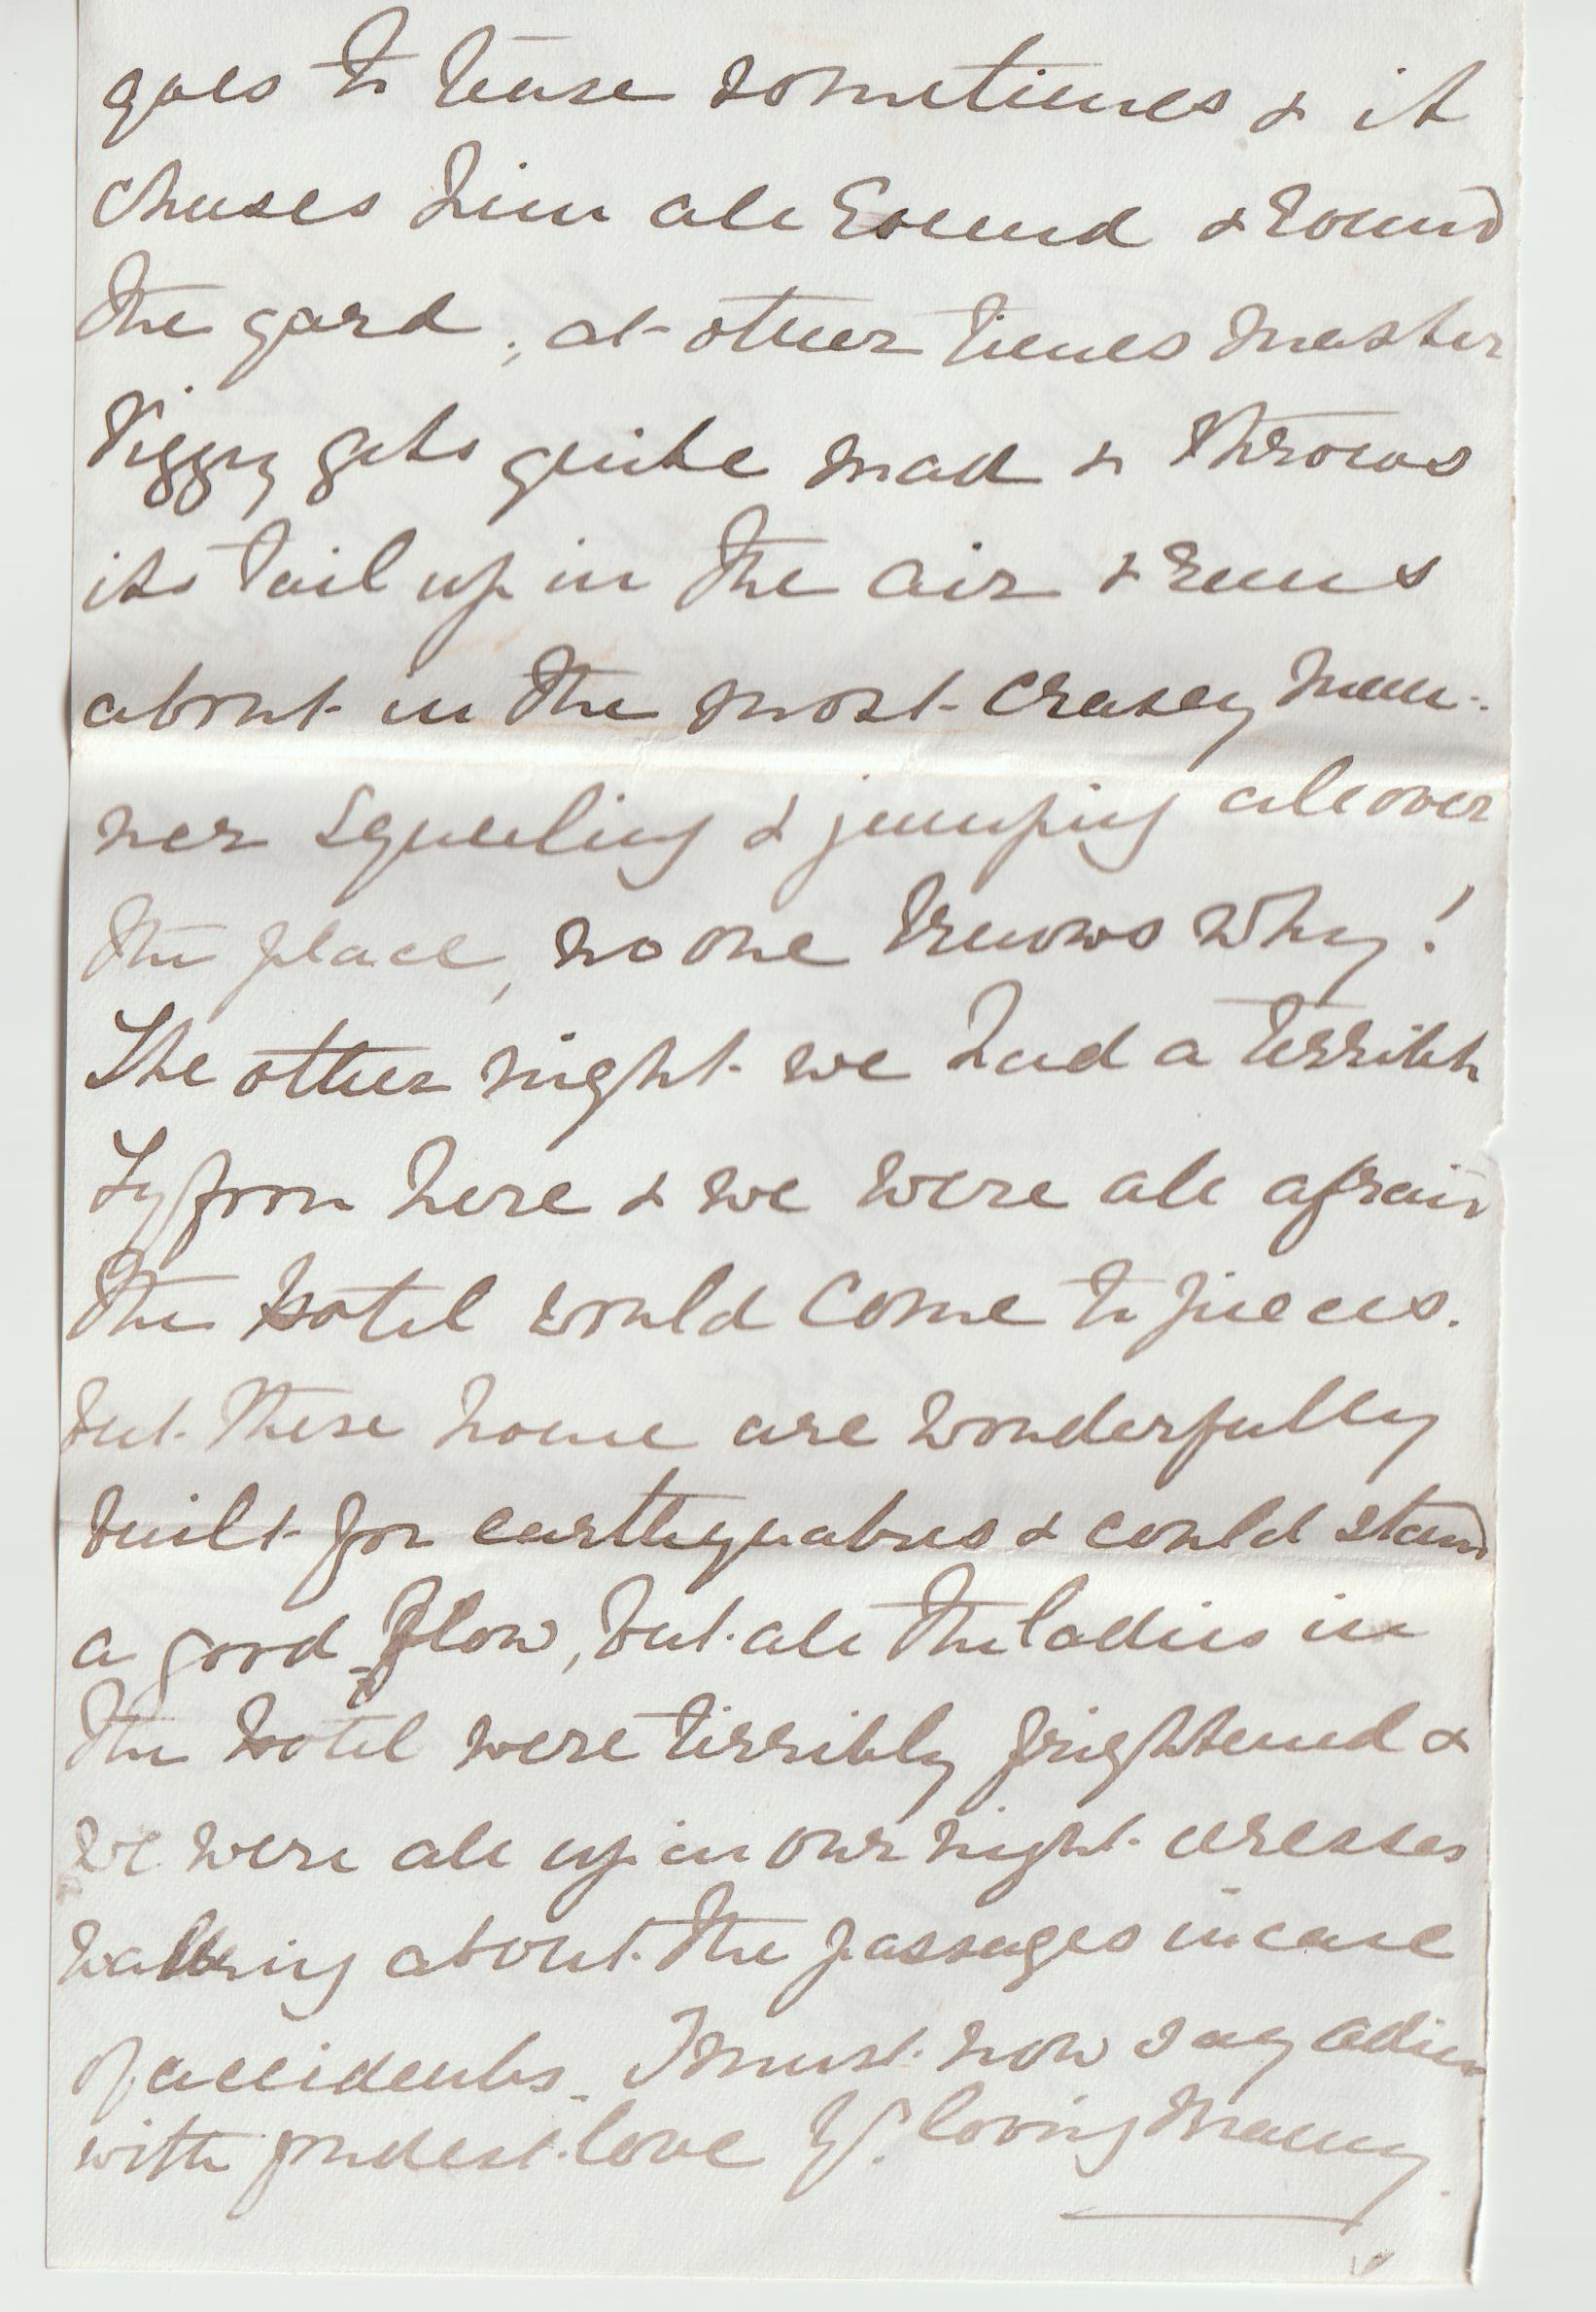 goes to tease sometimes & it
chases him all round & round
the yard, at other times master
Piggy gets quite mad & throws
its tail up in the air & runs
about in the most crasey man-
ner squeeling & jumping all over
the place, no one knows why!
The other night we had a terrible
Tyfoon here & we were all afraid
the hotel would come to pieces.
but these house are wonderfully
built for earthquakes & could stand
a good blow, but all the ladies in
the hotel were terribly frightened &
we were all up in our night dresses
walking about the passages in case
of accidents. I must now say adieu
with fondest love Yr. loving